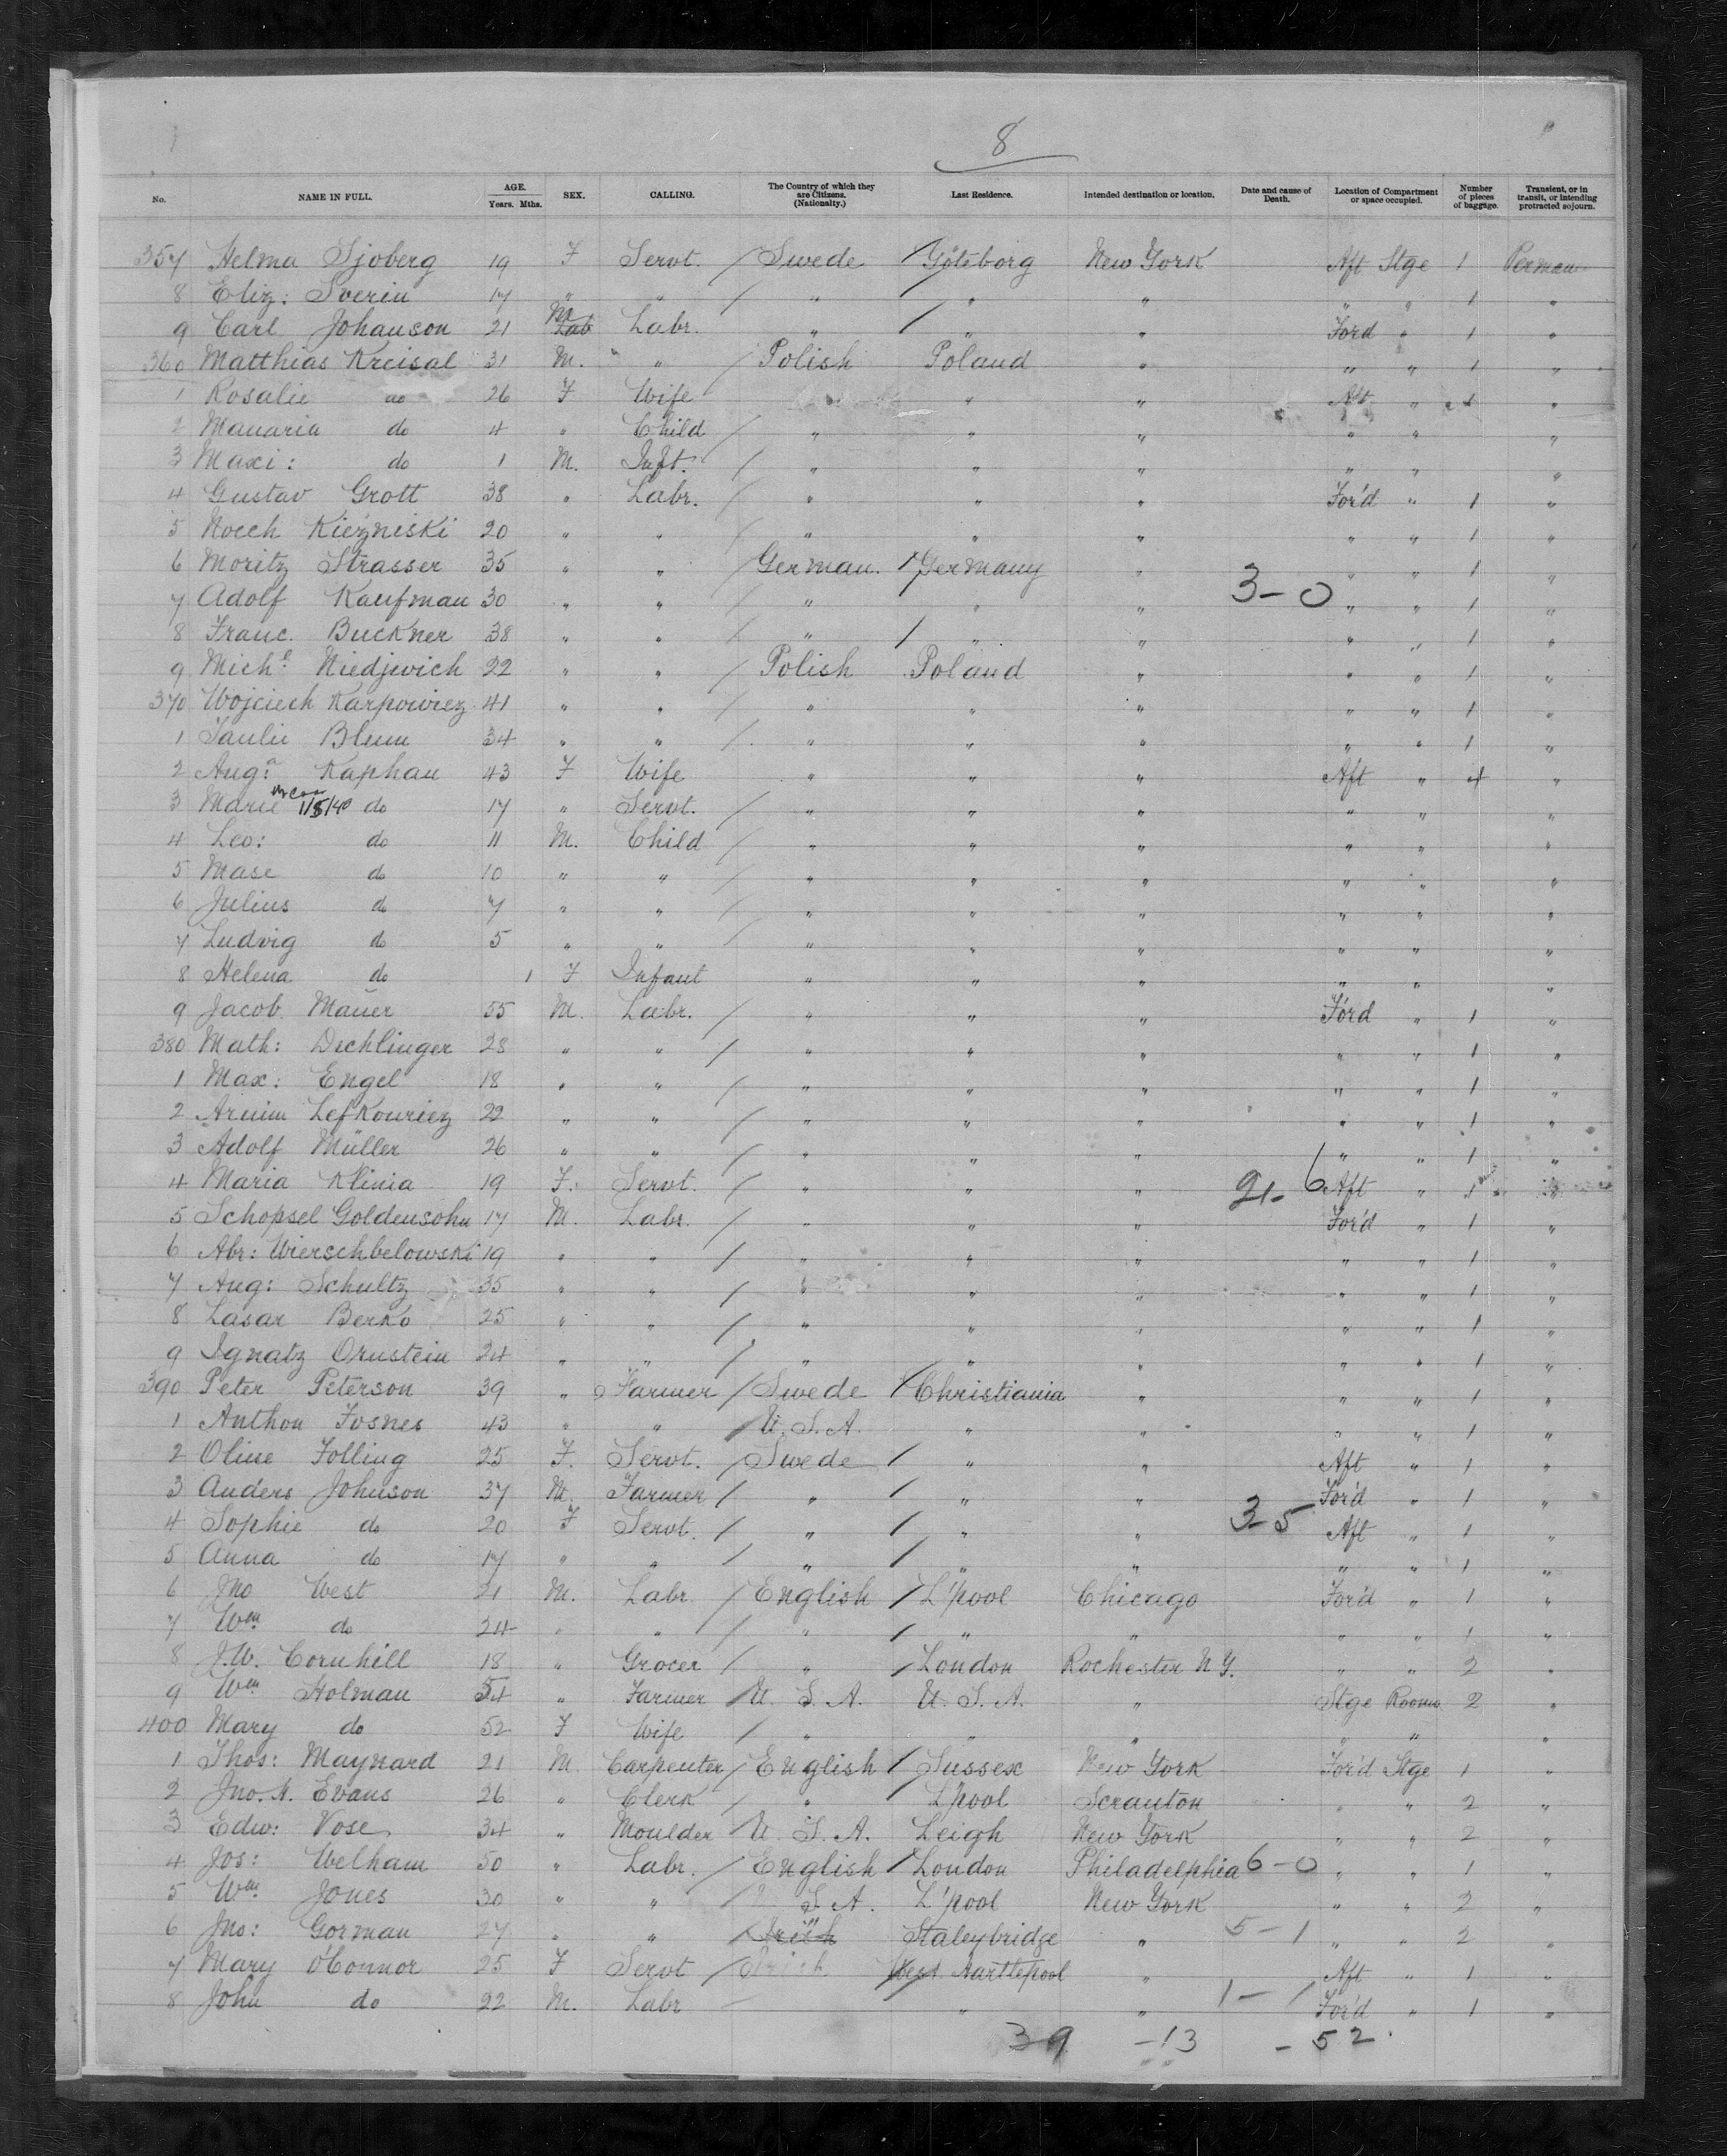 8
No. NAME IN FULL. AGE. Years. Mths. SEX. CALLING. The Country of which they are Citizens. (Nationality.) Last Residence. Intended destination or location. Date and cause of Death. Location of Compartment or space occupied. Number of pieces of baggage. Transient, or in transit, or intending protracted sojourn.
357 Helma Sjoberg 19 F Servt. / Swede / Göteborg New York Aft Stge 1 Perman
8 Eliz: Sverin 17 " " / " / " " " " 1 "
9 Carl Johanson 21 M Lab Labr. " / " " Ford " 1 "
360 Matthias Kreisal 31 M. " / Polish Poland " " " 1 "
1 Rosalie do 26 F Wife " " Aft " 1 "
2 Manaria do 4 " Child / " " " " " "
3 Maxi: do 1 M. Inft. / " " " " " "
4 Gustav Grott 38 " Labr. / " " " For'd " 1 "
5 Noech Kiezniski 20 " " / " " " " " 1 "
6 Moritz Strasser 35 " " / German. / Germany " " " 1 "
7 Adolf Kaufman 30 " " / " " " 3-0 " " 1 "
8 Franc. Buckner 38 " " / " / " " " " 1 "
9 Michl. Niedjwich 22 " " / Polish Poland " " " 1 "
370 Wojciech Karpowiez 41 " " / " " " " " 1 "
1 Saulie Blum 34 " " / " " " " " 1 "
2 Auga. Kaphan 43 F Wife " " " Aft " 4 "
3 Marie 1/5/40 do 17 " Servt. / " " " " " "
4 Leo: do 11 M. Child / " " " " " "
5 Mase do 10 " " / " " " " " "
6 Julius do 7 " " / " " " " " "
7 Ludvig do 5 " " / " " " " " "
8 Helena do 1 F Infant " " " " " "
9 Jacob Mauer 55 M. Labr. / " " " Ford " 1 "
380 Math: Dechlinger 28 " " / " " " " " 1 "
1 Max: Engel 18 " " / " " " " " 1 "
2 Armin Lefkowriez 22 " " / " " " " " 1 "
3 Adolf Müller 26 " " / " " " " " 1 "
4 Maria Klinia 19 F. Servt. / " " " 21-6 Aft " 1 "
5 Schopsel Goldensohn 17 M. Labr. / " " " For'd " 1 "
6 Abr: Wierschbelowski 19 " " / " " " " " 1 "
7 Aug: Schultz 35 " " / " " " " " 1 "
8 Lasar Berko 25 " " / " " " " " 1 "
9 Ignatz Ornstein 24 " " / " " " " " 1 "
390 Peter Peterson 39 " Farmer / Swede / Christiania " " " 1 "
1 Anthon Fosnes 43 " " / U.S.A. " " " " 1 "
2 Oline Folling 25 F. Servt. / Swede / " " Aft " 1 "
3 Anders Johnson 37 M. Farmer / " / " " For'd " 1 "
4 Sophie do 20 F Servt. / " / " " 3-5 Aft " 1 "
5 Anna do 17 " " / " / " " " " 1 "
6 Jno West 21 M. Labr. / English / L'pool Chicago For'd " 1 "
7 Wm do 24 " " / " / " " " " 1 "
8 J.W. Cornhill 18 " Grocer / " / London Rochester N.Y. " " 2 "
9 Wm Holman 54 " Farmer / U. S. A. U. S. A. " Stge Rooms 2 "
400 Mary do 52 F Wife / " " " " " "
1 Thos: Maynard 21 M Carpenter / English / Sussex New York For'd Stge 1 "
2 Jno. H. Evans 26 " Clerk / " L'pool Scranton " " 2 "
3 Edw: Vose 34 " Moulder U. S. A. Leigh New York " " 2 "
4 Jos: Welham 50 " Labr. / English / London Philadelphia 6-0 " " 1 "
5 Wm Jones 30 " " / S. A. L'pool New York " " 2 "
6 Jno: Gorman 27 " " / Irish Staleybridge " 5-1 " " 2 "
7 Mary O'Connor 25 F Servt / Irish West Hartlepool " Aft " 1 "
8 John do 22 M. Labr " " 1-1 For'd " 1 "
39 -13 -52.